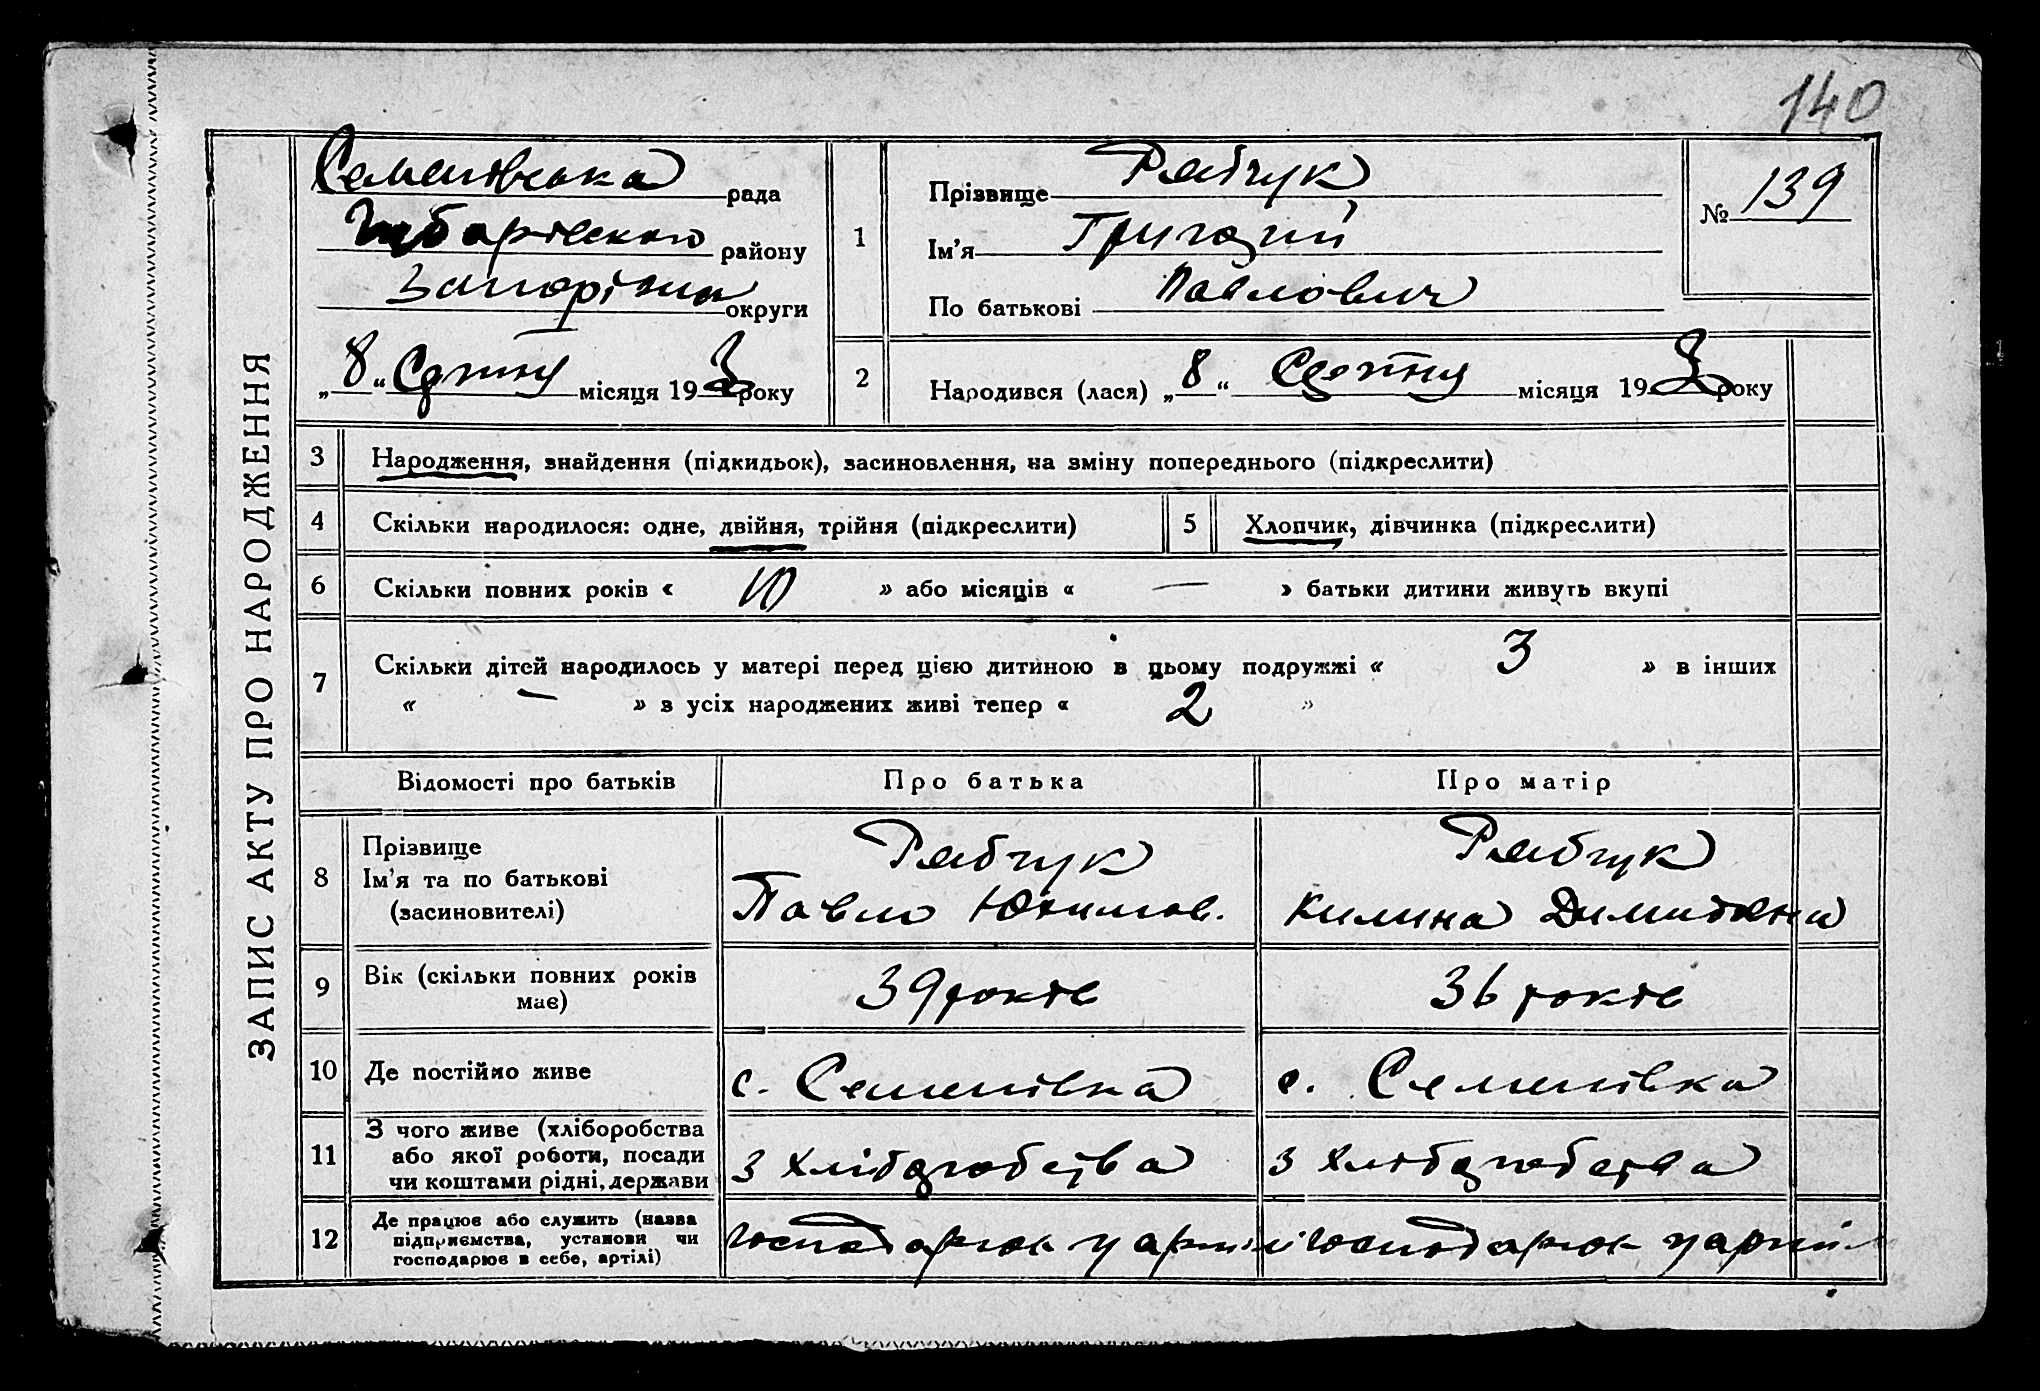 140
ЗАПИС АКТУ ПРО НАРОДЖЕННЯ
Семенівська рада
району
округи
„8“ Серпня місяця 193 року
1
Прізвище Рябчук
Ім'я Григорій
По батькові Павлович
№ 139
2
Народився (лася) „8“ Серпня місяця 193 року
3 Народження, знайдення (підкидьок), засиновлення, на зміну попереднього (підкреслити)
4 Скільки народилося: одне, двійня, трійня (підкреслити) 5 Хлопчик, дівчинка (підкреслити)
6 Скільки повних років « 10 » або місяців « — » батьки дитини живуть вкупі
7 Скільки дітей народилось у матері перед цією дитиною в цьому подружжі « 3 » в інших
« — » з усіх народжених живі тепер « 2 »
Відомості про батьків Про батька Про матір
8 Прізвище
Ім'я та по батькові
(засиновителі)
Рябчук
Павло Юхимов.
Рябчук
Килина
9 Вік (скільки повних років
має)
39 років
36 років
10 Де постійно живе с. Семенівка с. Семенівка
11 З чого живе (хліборобства
або якої роботи, посади
чи коштами рідні, держави
з хліборобства
з хліборобства
12 Де працює або служить (назва
підприємства, установи чи
господарює в себе, артілі)
господарює у артілі
господарює у артілі